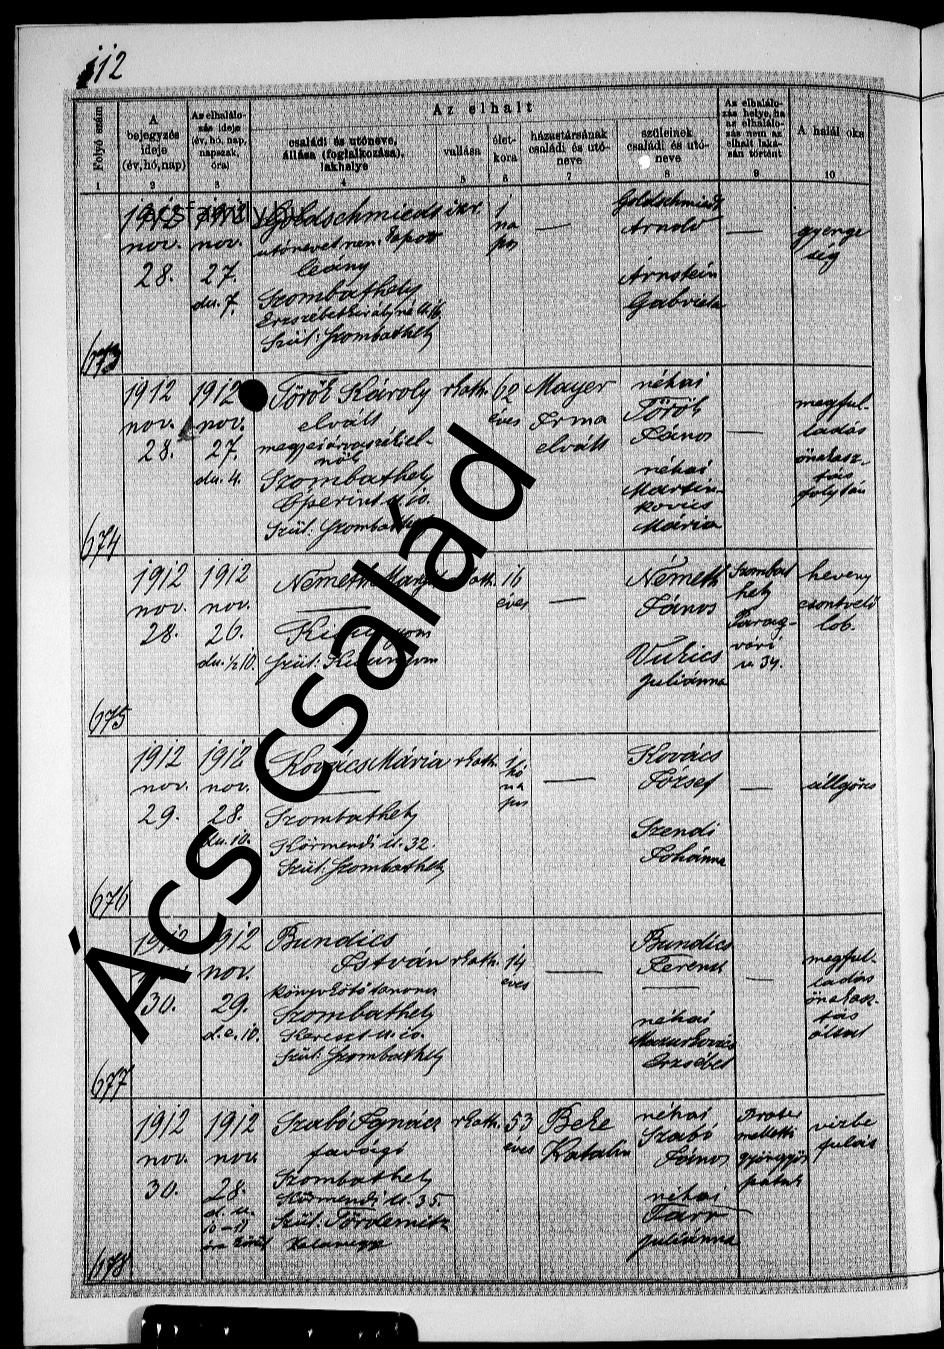 112
Az elhalt
Folyó szám
A bejegyzés ideje (év, hó, nap)
Az elhalálozás ideje (év, hó, nap, napszak, óra)
családi és utóneve, állása (foglalkozása), lakhelye
vallása
életkora
házastársának családi és utóneve
szüleinek családi és utóneve
Az elhalálozás helye, ha az elhalálozás nem az elhalt lakásán történt
A halál oka
1 2 3 4 5 6 7 8 9 10
acsfamily.hu
673
1912 nov. 28.
nov. 27. du. 7.
Goldschmied
utónevet nem kapott
leány
Szombathely
Erzsébet királyné u. 16
Szül: Szombathely
izr.
1 na pos
—
Goldschmied
Arnold
Arnstein
Gabriela
—
gyenge
ség
674
1912 nov. 28.
1912 nov. 27. du. 4.
Török Károly
elvált
Szombathely
Szül: Szombathely
r. kath.
62 éves
Mayer
Irma
elvált
néhai
Török
János
néhai
Martin-
kovics
Mária
—
megful-
ladás
önakasz-
tás
folytán
675
1912 nov. 28.
1912 nov. 26. du. ½10.
Németh
Kisunyom
Szül: Kisunyom
r. kath.
16 éves
—
Németh
János
Vukics
Juliánna
Szombat
hely
u 34.
heveny
csontvelő
lob.
676
1912 nov. 29.
1912 nov. 28. du. 10.
Kovács Mária
Szombathely
Körmendi u. 32.
Szül: Szombathely
r. kath.
1 hó na pos
—
Kovács
József
Szendi
Johánna
—
állgörcs
677
1912
30.
1912 nov. 29. d. e. 10.
Bundics
István
könyvkötő tanonc
Szombathely
Kereszt u. 10.
Szül: Szombathely
r. kath.
14 éves
—
Bundics
Ferenc
néhai
Erzsébet
—
megful-
ladás
önakasz-
tás
által
678
1912 nov. 30.
1912 nov. 28. d. u.
10–11
óra között
Szabó Ignácz
favágó
Szombathely
Körmendi u. 35.
Szül:
r. kath.
53 éves
Beke
Katalin
néhai
Szabó
János
néhai
Tarr
Juliánna
melletti
gyöngyös
patak
vizbe
fulás
Ács család